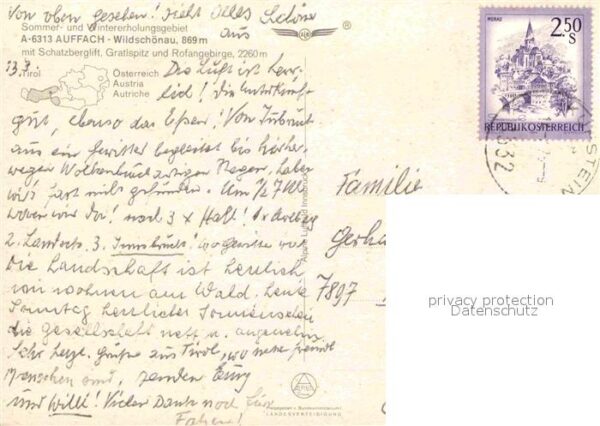 Von oben gesehen! sieht alles Schöne
Sommer- und Wintererholungsgebiet
aus
A-6313 AUFFACH - Wildschönau, 869 m
mit Schatzberglift, Gratlspitz und Rofangebirge, 2260 m
Tirol
Österreich
Austria
Autriche
Die Luft ist herr-
lich! die Unterkunft
gut, ebenso das Essen! Von Insbruck
aus ein Gewitter begleitet bis hierher,
wegen Wolkenbruchartigen Regen, haben
wir's fast nicht gefunden. Um 1/2 7 Uhr
waren wir da! noch 3 x Halt! 1. Arlberg
2. Landeck 3. Innsbruck!
Die Landschaft ist herrlich
wir wohnen am Wald, heute
Sonntag herrlicher Sonnenschein
die Gesellschaft nett u. angenehm
Sehr herzl. Grüße aus Tirol, wo nette
Menschen sind, senden Euch
und Willi! Vielen Dank noch fürs
Fahren!
Familie
7897
MURAU
2.50
S
REPUBLIK ÖSTERREICH
6332
STEIN
Alpine Luftbild Innsbruck
Freigegeben v. Bundesministerium f.
LANDESVERTEIDIGUNG
privacy protection
Datenschutz